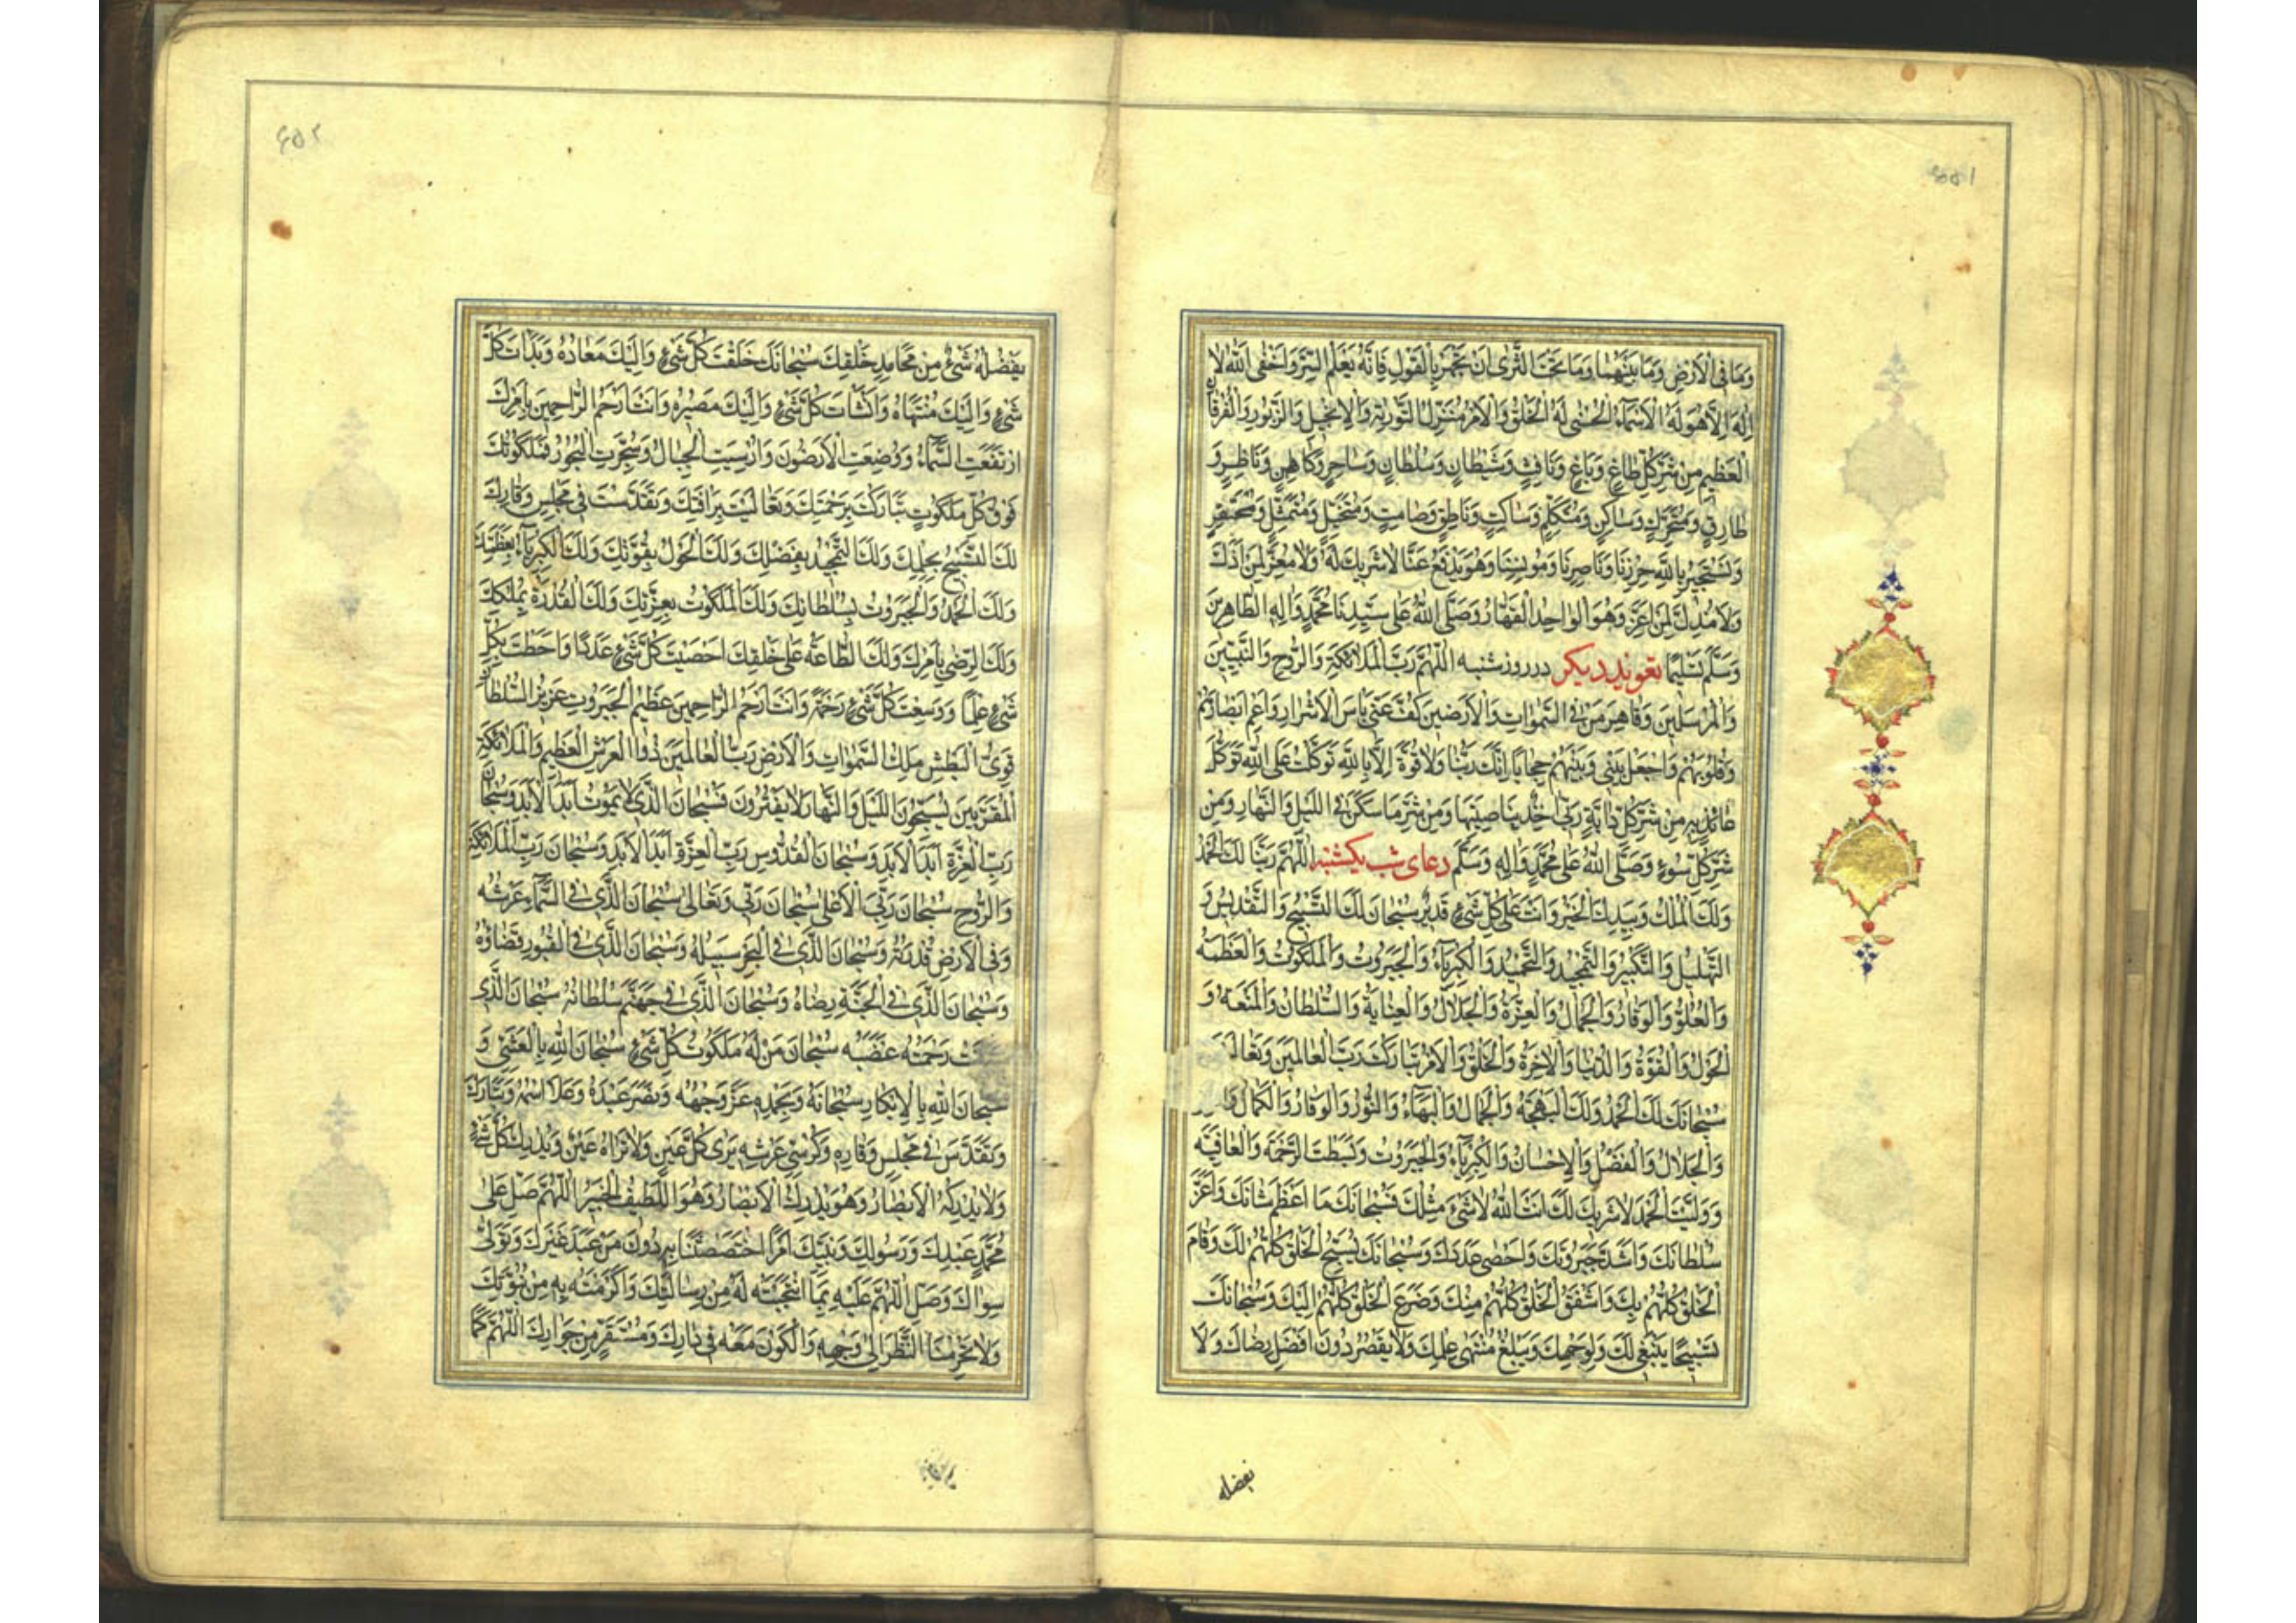 ۶۵۱
وَمَا فِى الْاَرْضِ وَمَا بَيْنَهُمَا وَمَا تَحْتَ الثَّرٰى اِنْ تَجْهَرْ بِالْقَوْلِ فَاِنَّهُ يَعْلَمُ السِّرَّ وَاَخْفٰى اَللّٰهُ لَا
اِلٰهَ اِلَّا هُوَ لَهُ الْاَسْمَآءُ الْحُسْنٰى لَهُ الْخَلْقُ وَالْاَمْرُ مُنْزِلُ التَّوْرٰيةِ وَالْاِنْجِيلِ وَالزَّبُورِ وَالْفُرْقَانِ
الْعَظِيمِ مِنْ شَرِّ كُلِّ طَاغٍ وَبَاغٍ وَنَافِثٍ وَشَيْطَانٍ وَسُلْطَانٍ وَسَاحِرٍ وَكَاهِنٍ وَنَاظِرٍ وَ
طَارِقٍ وَمُتَحَرِّكٍ وَسَاكِنٍ وَمُتَكَلِّمٍ وَسَاكِتٍ وَنَاطِقٍ وَصَامِتٍ وَمُتَخَيِّلٍ وَمُتَمَثِّلٍ وَمُحْتَقِرٍ
وَنَسْتَجِيرُ بِاللّٰهِ حِرْزِنَا وَنَاصِرِنَا وَمُونِسِنَا وَهُوَ يَدْفَعُ عَنَّا لَا شَرِيكَ لَهُ وَلَا مُعِزَّ لِمَنْ اَذَلَّ
وَلَا مُذِلَّ لِمَنْ اَعَزَّ وَهُوَ الْوَاحِدُ الْقَهَّارُ وَصَلَّى اللّٰهُ عَلٰى سَيِّدِنَا مُحَمَّدٍ وَالِهِ الطَّاهِرِينَ
وَسَلَّمَ تَسْلِيمًا تعويذ ديكر در روز شنبه اَللّٰهُمَّ رَبَّ الْمَلٰائِكَةِ وَالرُّوحِ وَالنَّبِيّينَ
وَالْمُرْسَلِينَ وَقَاهِرَ مَنْ فِى السَّمٰوَاتِ وَالْاَرَضِينَ كُفَّ عَنِّى بَاْسَ الْاَشْرَارِ وَاَعْمِ اَبْصَارَهُمْ
وَقُلُوبَهُمْ وَاجْعَلْ بَيْنِى وَبَيْنَهُمْ حِجَابًا اِنَّكَ رَبُّنَا وَلَا قُوَّةَ اِلَّا بِاللّٰهِ تَوَكَّلْتُ عَلَى اللّٰهِ تَوَكُّلَ
عَائِذٍ بِهِ مِنْ شَرِّ كُلِّ دَابَّةٍ رَبِّى اٰخِذٌ بِنَاصِيَتِهَا وَمِنْ شَرِّ مَا سَكَنَ فِى اللَّيْلِ وَالنَّهَارِ وَمِنْ
شَرِّ كُلِّ سُوءٍ وَصَلَّى اللّٰهُ عَلٰى مُحَمَّدٍ وَالِهِ وَسَلَّمَ دعاى شب يكشنبه اَللّٰهُمَّ رَبَّنَا لَكَ الْحَمْدُ
وَلَكَ الْمُلْكُ وَبِيَدِكَ الْخَيْرُ وَاَنْتَ عَلٰى كُلِّ شَىْءٍ قَدِيرٌ سُبْحَانَكَ لَكَ التَّسْبِيحُ وَالتَّقْدِيسُ وَ
التَّهْلِيلُ وَالتَّكْبِيرُ وَالتَّمْجِيدُ وَالتَّحْمِيدُ وَالْكِبْرِيَآءُ وَالْجَبَرُوتُ وَالْمَلَكُوتُ وَالْعَظَمَةُ
وَالْعُلُوُّ وَالْوَقَارُ وَالْجَمَالُ وَالْعِزَّةُ وَالْجَلَالُ وَالْعِنَايَةُ وَالسُّلْطَانُ وَالْمَنَعَةُ وَ
الْحَوْلُ وَالْقُوَّةُ وَالدُّنْيَا وَالْاٰخِرَةُ وَالْخَلْقُ وَالْاَمْرُ تَبَارَكْتَ رَبَّ الْعَالَمِينَ وَتَعَالَيْتَ
سُبْحَانَكَ لَكَ الْحَمْدُ وَلَكَ الْبَهْجَةُ وَالْجَمَالُ وَالْبَهَآءُ وَالنُّورُ وَالْوَقَارُ وَالْكَمَالُ
وَالْجَلَالُ وَالْفَضْلُ وَالْاِحْسَانُ وَالْكِبْرِيَآءُ وَالْجَبَرُوتُ وَبَسَطْتَ الرَّحْمَةَ وَالْعَافِيَةَ
وَوَلَّيْتَ الْحَمْدَ لَا شَرِيكَ لَكَ اَنْتَ اللّٰهُ لَا شَىْءَ مِثْلُكَ فَسُبْحَانَكَ مَا اَعْظَمَ شَانَكَ وَاَعَزَّ
سُلْطَانَكَ وَاَشَدَّ جَبَرُوتَكَ وَاَحْصٰى عَدَدَكَ وَسُبْحَانَكَ يُسَبِّحُ الْخَلْقُ كُلُّهُمْ لَكَ وَقَامَ
الْخَلْقُ كُلُّهُمْ بِكَ وَاَشْفَقَ الْخَلْقُ كُلُّهُمْ مِنْكَ وَضَرَعَ الْخَلْقُ كُلُّهُمْ اِلَيْكَ وَسُبْحَانَكَ
تَسْبِيحًا يَنْبَغِى لَكَ وَلِوَجْهِكَ وَيَبْلُغُ مُنْتَهٰى عِلْمِكَ وَلَا يَقْصُرُ دُونَ اَفْضَلِ رِضَاكَ وَلَا
يفضله
۶۵۲
يَفْضُلُهُ شَىْءٌ مِنْ مَحَامِدِ خَلْقِكَ سُبْحَانَكَ خَلَقْتَ كُلَّ شَىْءٍ وَاِلَيْكَ مَعَادُهُ وَبَدَاْتَ كُلَّ
شَىْءٍ وَاِلَيْكَ مُنْتَهَاهُ وَاَنْشَاْتَ كُلَّ شَىْءٍ وَاِلَيْكَ مَصِيرُهُ وَاَنْتَ اَرْحَمُ الرَّاحِمِينَ بِاَمْرِكَ
ارْتَفَعَتِ السَّمَآءُ وَوُضِعَتِ الْاَرَضُونَ وَاُرْسِيَتِ الْجِبَالُ وَسُجِّرَتِ الْبُحُورُ فَمَلَكُوتُكَ
فَوْقَ كُلِّ مَلَكُوتٍ تَبَارَكْتَ بِرَحْمَتِكَ وَتَعَالَيْتَ بِرَاْفَتِكَ وَتَقَدَّسْتَ فِى مَجْلِسِ وَقَارِكَ
لَكَ التَّسْبِيحُ بِحِلْمِكَ وَلَكَ التَّمْجِيدُ بِفَضْلِكَ وَلَكَ الْحَوْلُ بِقُوَّتِكَ وَلَكَ الْكِبْرِيَآءُ بِعَظَمَتِكَ
وَلَكَ الْحَمْدُ وَالْجَبَرُوتُ بِسُلْطَانِكَ وَلَكَ الْمَلَكُوتُ بِعِزَّتِكَ وَلَكَ الْقُدْرَةُ بِمُلْكِكَ
وَلَكَ الرِّضٰى بِاَمْرِكَ وَلَكَ الطَّاعَةُ عَلٰى خَلْقِكَ اَحْصَيْتَ كُلَّ شَىْءٍ عَدَدًا وَاَحَطْتَ بِكُلِّ
شَىْءٍ عِلْمًا وَوَسِعْتَ كُلَّ شَىْءٍ رَحْمَةً وَاَنْتَ اَرْحَمُ الرَّاحِمِينَ عَظِيمُ الْجَبَرُوتِ عَزِيزُ السُّلْطَانِ
قَوِىُّ الْبَطْشِ مَلِكُ السَّمٰوَاتِ وَالْاَرْضِ رَبُّ الْعَالَمِينَ ذُو الْعَرْشِ الْعَظِيمِ وَالْمَلٰائِكَةِ
الْمُقَرَّبِينَ يُسَبِّحُونَ اللَّيْلَ وَالنَّهَارَ لَا يَفْتُرُونَ فَسُبْحَانَ الَّذِى لَا يَمُوتُ اَبَدَ الْاَبَدِ وَسُبْحَانَ
رَبِّ الْعِزَّةِ اَبَدَ الْاَبَدِ وَسُبْحَانَ الْقُدُّوسِ رَبِّ الْعِزَّةِ اَبَدَ الْاَبَدِ وَسُبْحَانَ رَبِّ الْمَلٰائِكَةِ
وَالرُّوحِ سُبْحَانَ رَبِّىَ الْاَعْلٰى سُبْحَانَ رَبِّى وَتَعَالٰى سُبْحَانَ الَّذِى فِى السَّمَآءِ عَرْشُهُ
وَفِى الْاَرْضِ قُدْرَتُهُ وَسُبْحَانَ الَّذِى فِى الْبَحْرِ سَبِيلُهُ وَسُبْحَانَ الَّذِى فِى الْقُبُورِ قَضَاؤُهُ
وَسُبْحَانَ الَّذِى فِى الْجَنَّةِ رِضَاهُ وَسُبْحَانَ الَّذِى فِى جَهَنَّمَ سُلْطَانُهُ سُبْحَانَ الَّذِى
سَبَقَتْ رَحْمَتُهُ غَضَبَهُ سُبْحَانَ مَنْ لَهُ مَلَكُوتُ كُلِّ شَىْءٍ سُبْحَانَ اللّٰهِ بِالْعَشِىِّ وَ
سُبْحَانَ اللّٰهِ بِالْاِبْكَارِ سُبْحَانَهُ وَبِحَمْدِهِ عَزَّ وَجْهُهُ وَنَصَرَ عَبْدَهُ وَعَلَا اسْمُهُ وَتَبَارَكَ
وَتَقَدَّسَ فِى مَجْلِسِ وَقَارِهِ وَكُرْسِىِّ عَرْشِهِ يَرٰى كُلَّ عَيْنٍ وَلَا تَرَاهُ عَيْنٌ وَيُدْرِكُ كُلَّ شَىْءٍ
وَلَا يُدْرِكُهُ الْاَبْصَارُ وَهُوَ يُدْرِكُ الْاَبْصَارَ وَهُوَ اللَّطِيفُ الْخَبِيرُ اَللّٰهُمَّ صَلِّ عَلٰى
مُحَمَّدٍ عَبْدِكَ وَرَسُولِكَ وَنَبِيِّكَ اَمْرًا اخْتَصَصْتَنَا بِهِ دُونَ مَنْ عَبَدَ غَيْرَكَ وَتَوَلّٰى
سِوَاكَ وَصَلِّ اَللّٰهُمَّ عَلَيْهِ بِمَا انْتَجَبْتَهُ لَهُ مِنْ رِسَالَتِكَ وَاَكْرَمْتَهُ بِهِ مِنْ نُبُوَّتِكَ
وَلَا تَحْرِمْنَا النَّظَرَ اِلٰى وَجْهِهِ وَالْكَوْنَ مَعَهُ فِى دَارِكَ وَمُسْتَقَرٍّ مِنْ جِوَارِكَ اَللّٰهُمَّ كَمَا